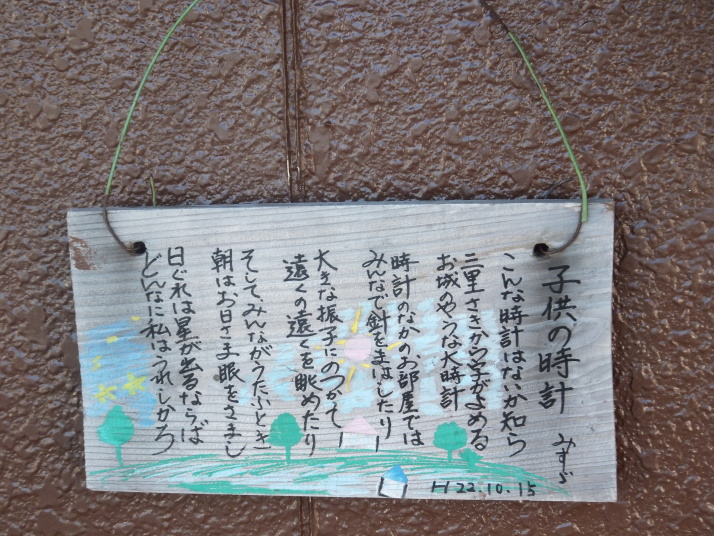 子供の時計
みすゞ
こんな時計はないか知ら
三里さきから字がよめる
お城のやうな大時計
時計のなかのお部屋では
みんなで針をまはしたり
大きな振子にのつかて
遠くの遠くを眺めたり
そしてみんながうたいとき
朝はお日さま眼をさまし
日ぐれは星が出るならば
どんなに私はうれしかろ
H22.10.15